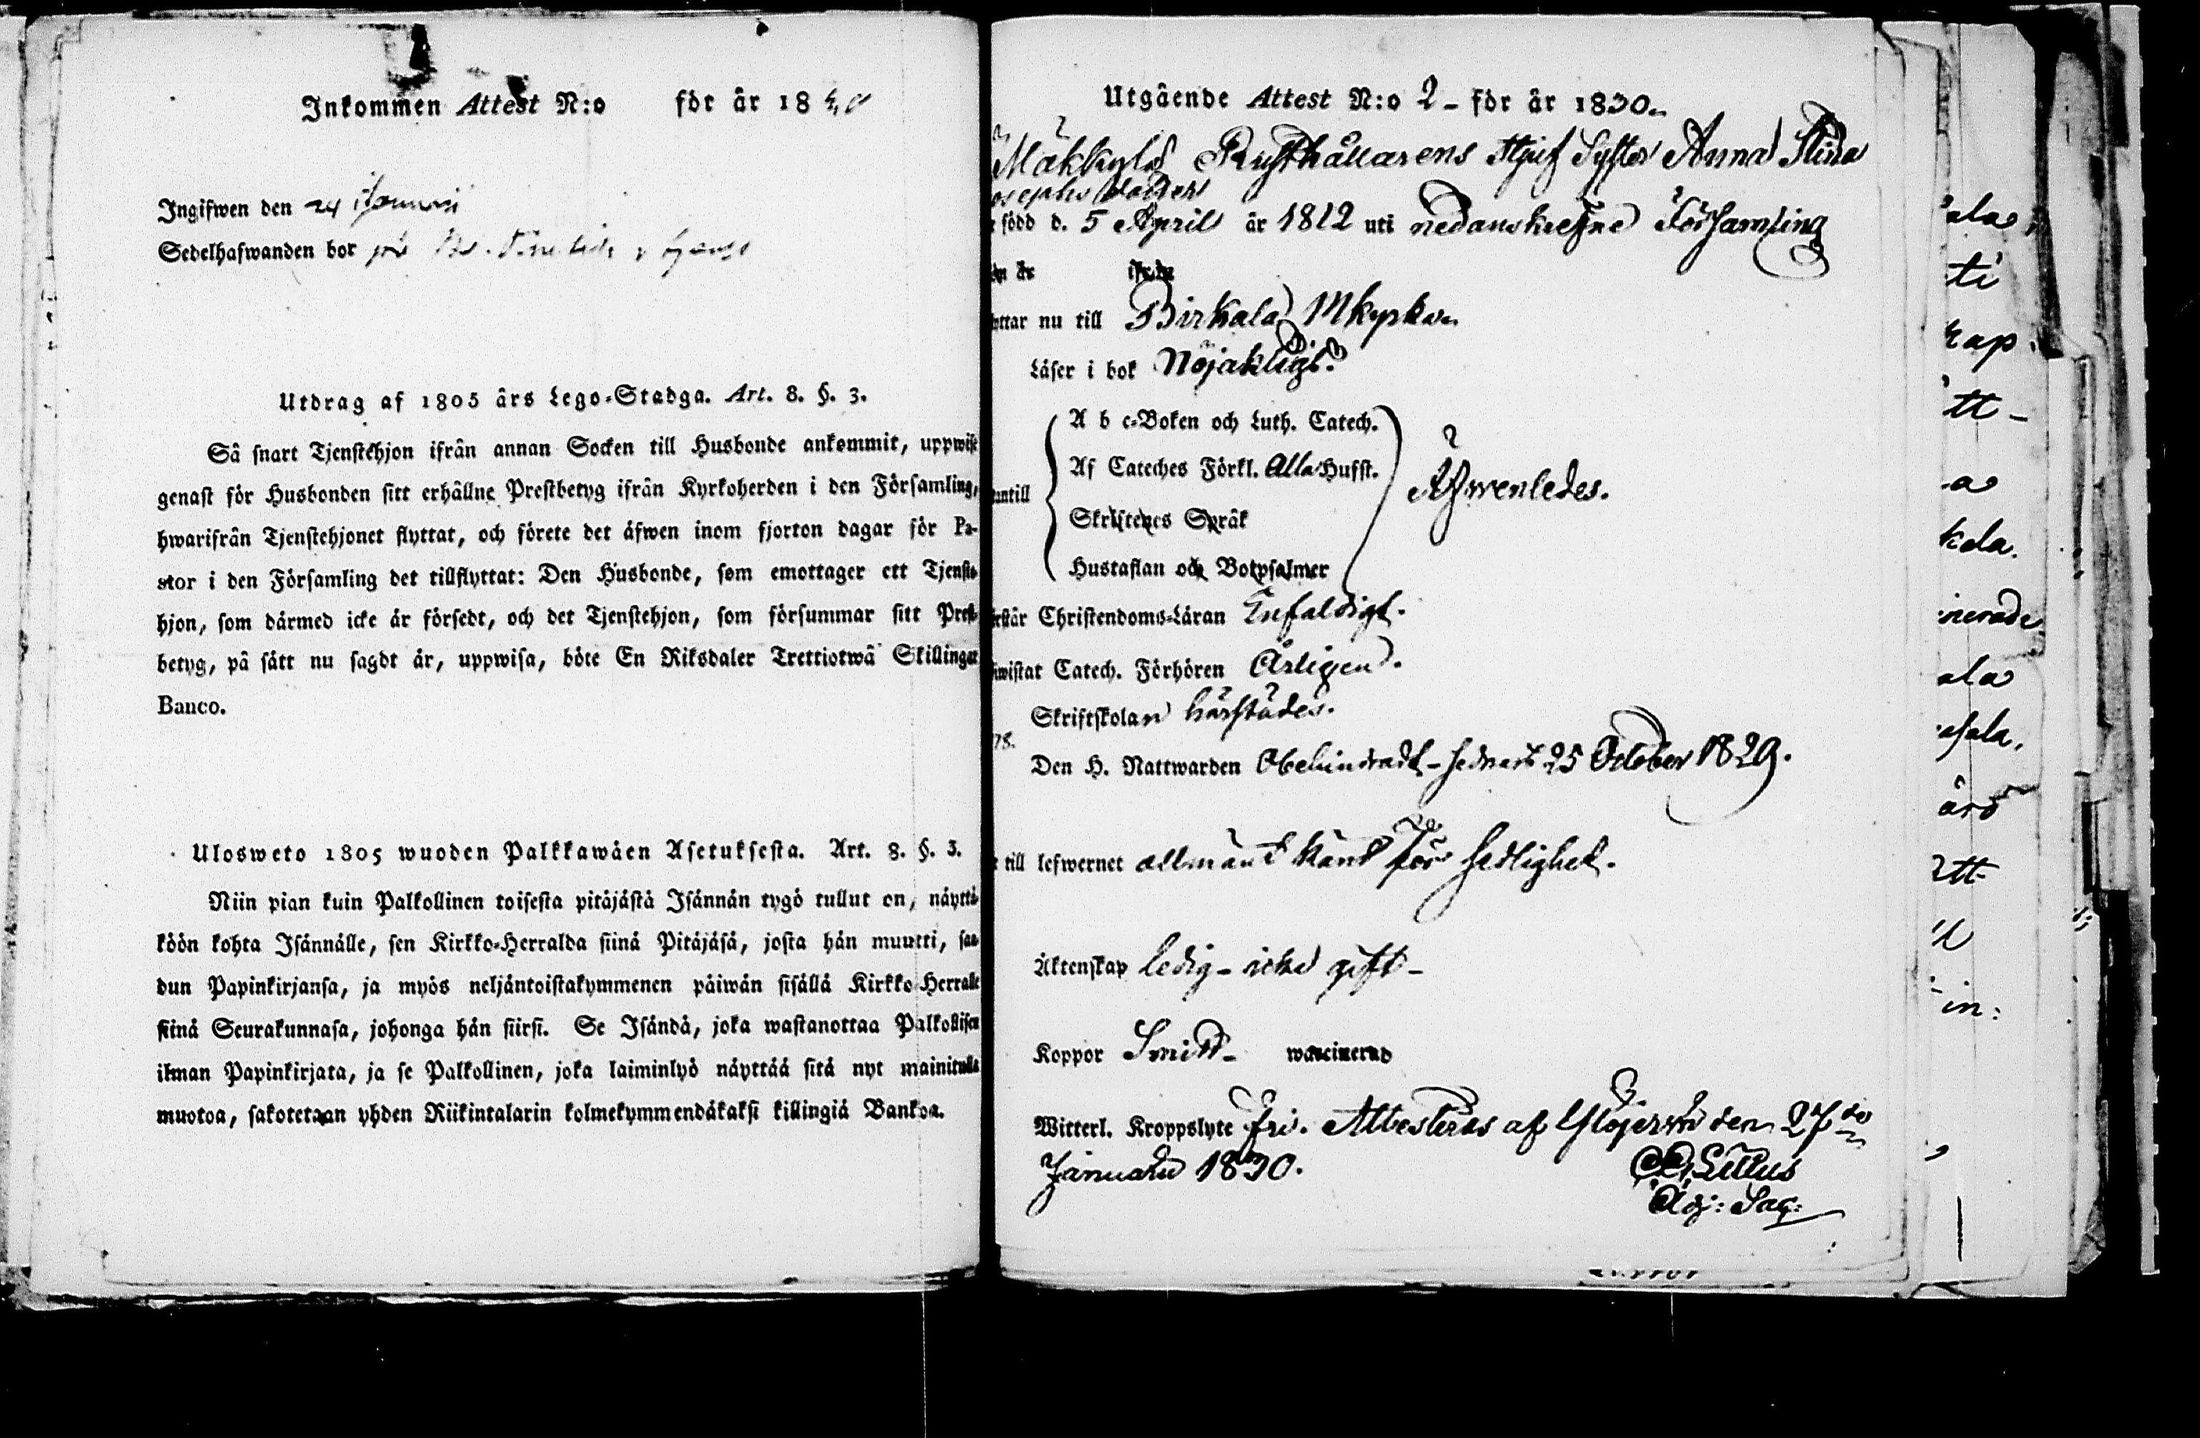 Inkommen Attest N:o för år 18
Ingifwen den 24 Januari
Sedelhafwanden bor
Utdrag af 1805 års Lego-Stadga. Art. 8. §. 3.
Så snart Tjenstehjon ifrån annan Socken till Husbonde ankommit, uppwise
genast för Husbonden sitt erhållne Prestbetyg ifrån Kyrkoherden i den Församling,
hwarifrån Tjenstehjonet flyttat, och förete det äfwen inom fjorton dagar för Pa-
stor i den Församling det tillflyttat: Den Husbonde, som emottager ett Tjenste-
hjon, som därmed icke är försedt, och det Tjenstehjon, som försummar sitt Prest-
betyg, på sätt nu sagdt är, uppwisa, böte En Riksdaler Trettiotwå Skillingar
Banco.
Ulosweto 1805 wuoden Palkkawäen Asetuksesta. Art. 8. §. 3.
Niin pian kuin Palkollinen toisesta pitäjästä Isännän tygö tullut on, näyttä-
köön kohta Isännälle, sen Kirkko-Herralda siinä Pitäjäsä, josta hän muutti, saa-
dun Papinkirjansa, ja myös neljäntoistakymmenen päiwän sisällä Kirkko-Herralle
siinä Seurakunnasa, johonga hän siirsi. Se Isändä, joka wastanottaa Palkollisen
ilman Papinkirjata, ja se Palkollinen, joka laiminlyö näyttää sitä nyt mainitulla
muotoa, sakotetaan yhden Riikintalarin kolmekymmendäkaksi killingiä Bankoa.
Utgående Attest N:o 2 - för år 1830.
Mäkkylä Rusthållarens Stjuf Syster Anna Stina
osephs dotter
född d. 5 April år 1812 uti nedanskrefne Församling
än år ifrån
yttar nu till Birkala Mkyrka
Läser i bok Nöjaktigt.
A b c-Boken och Luth. Catech.
Af Cateches Förkl. Alla Hufst.
untill Äfwenledes.
Skriftenes Språk
Hustaflan och Botpsalmer
rstår Christendoms-Läran Enfaldigt.
iwistat Catech. Förhören Årligen.
Skriftskolan härstädes.
Den H. Nattwarden Obehindradt - sednast 25 October 1829.
till lefwernet allmänt känd för sedlighet.
Äktenskap ledig - icke gift -
Koppor Smitt - waccinerad
Witterl. Kroppslyte fri. Attesteras af Ylöjerwi den 27de
Januari 1830.
Litius
Adj: Sac: